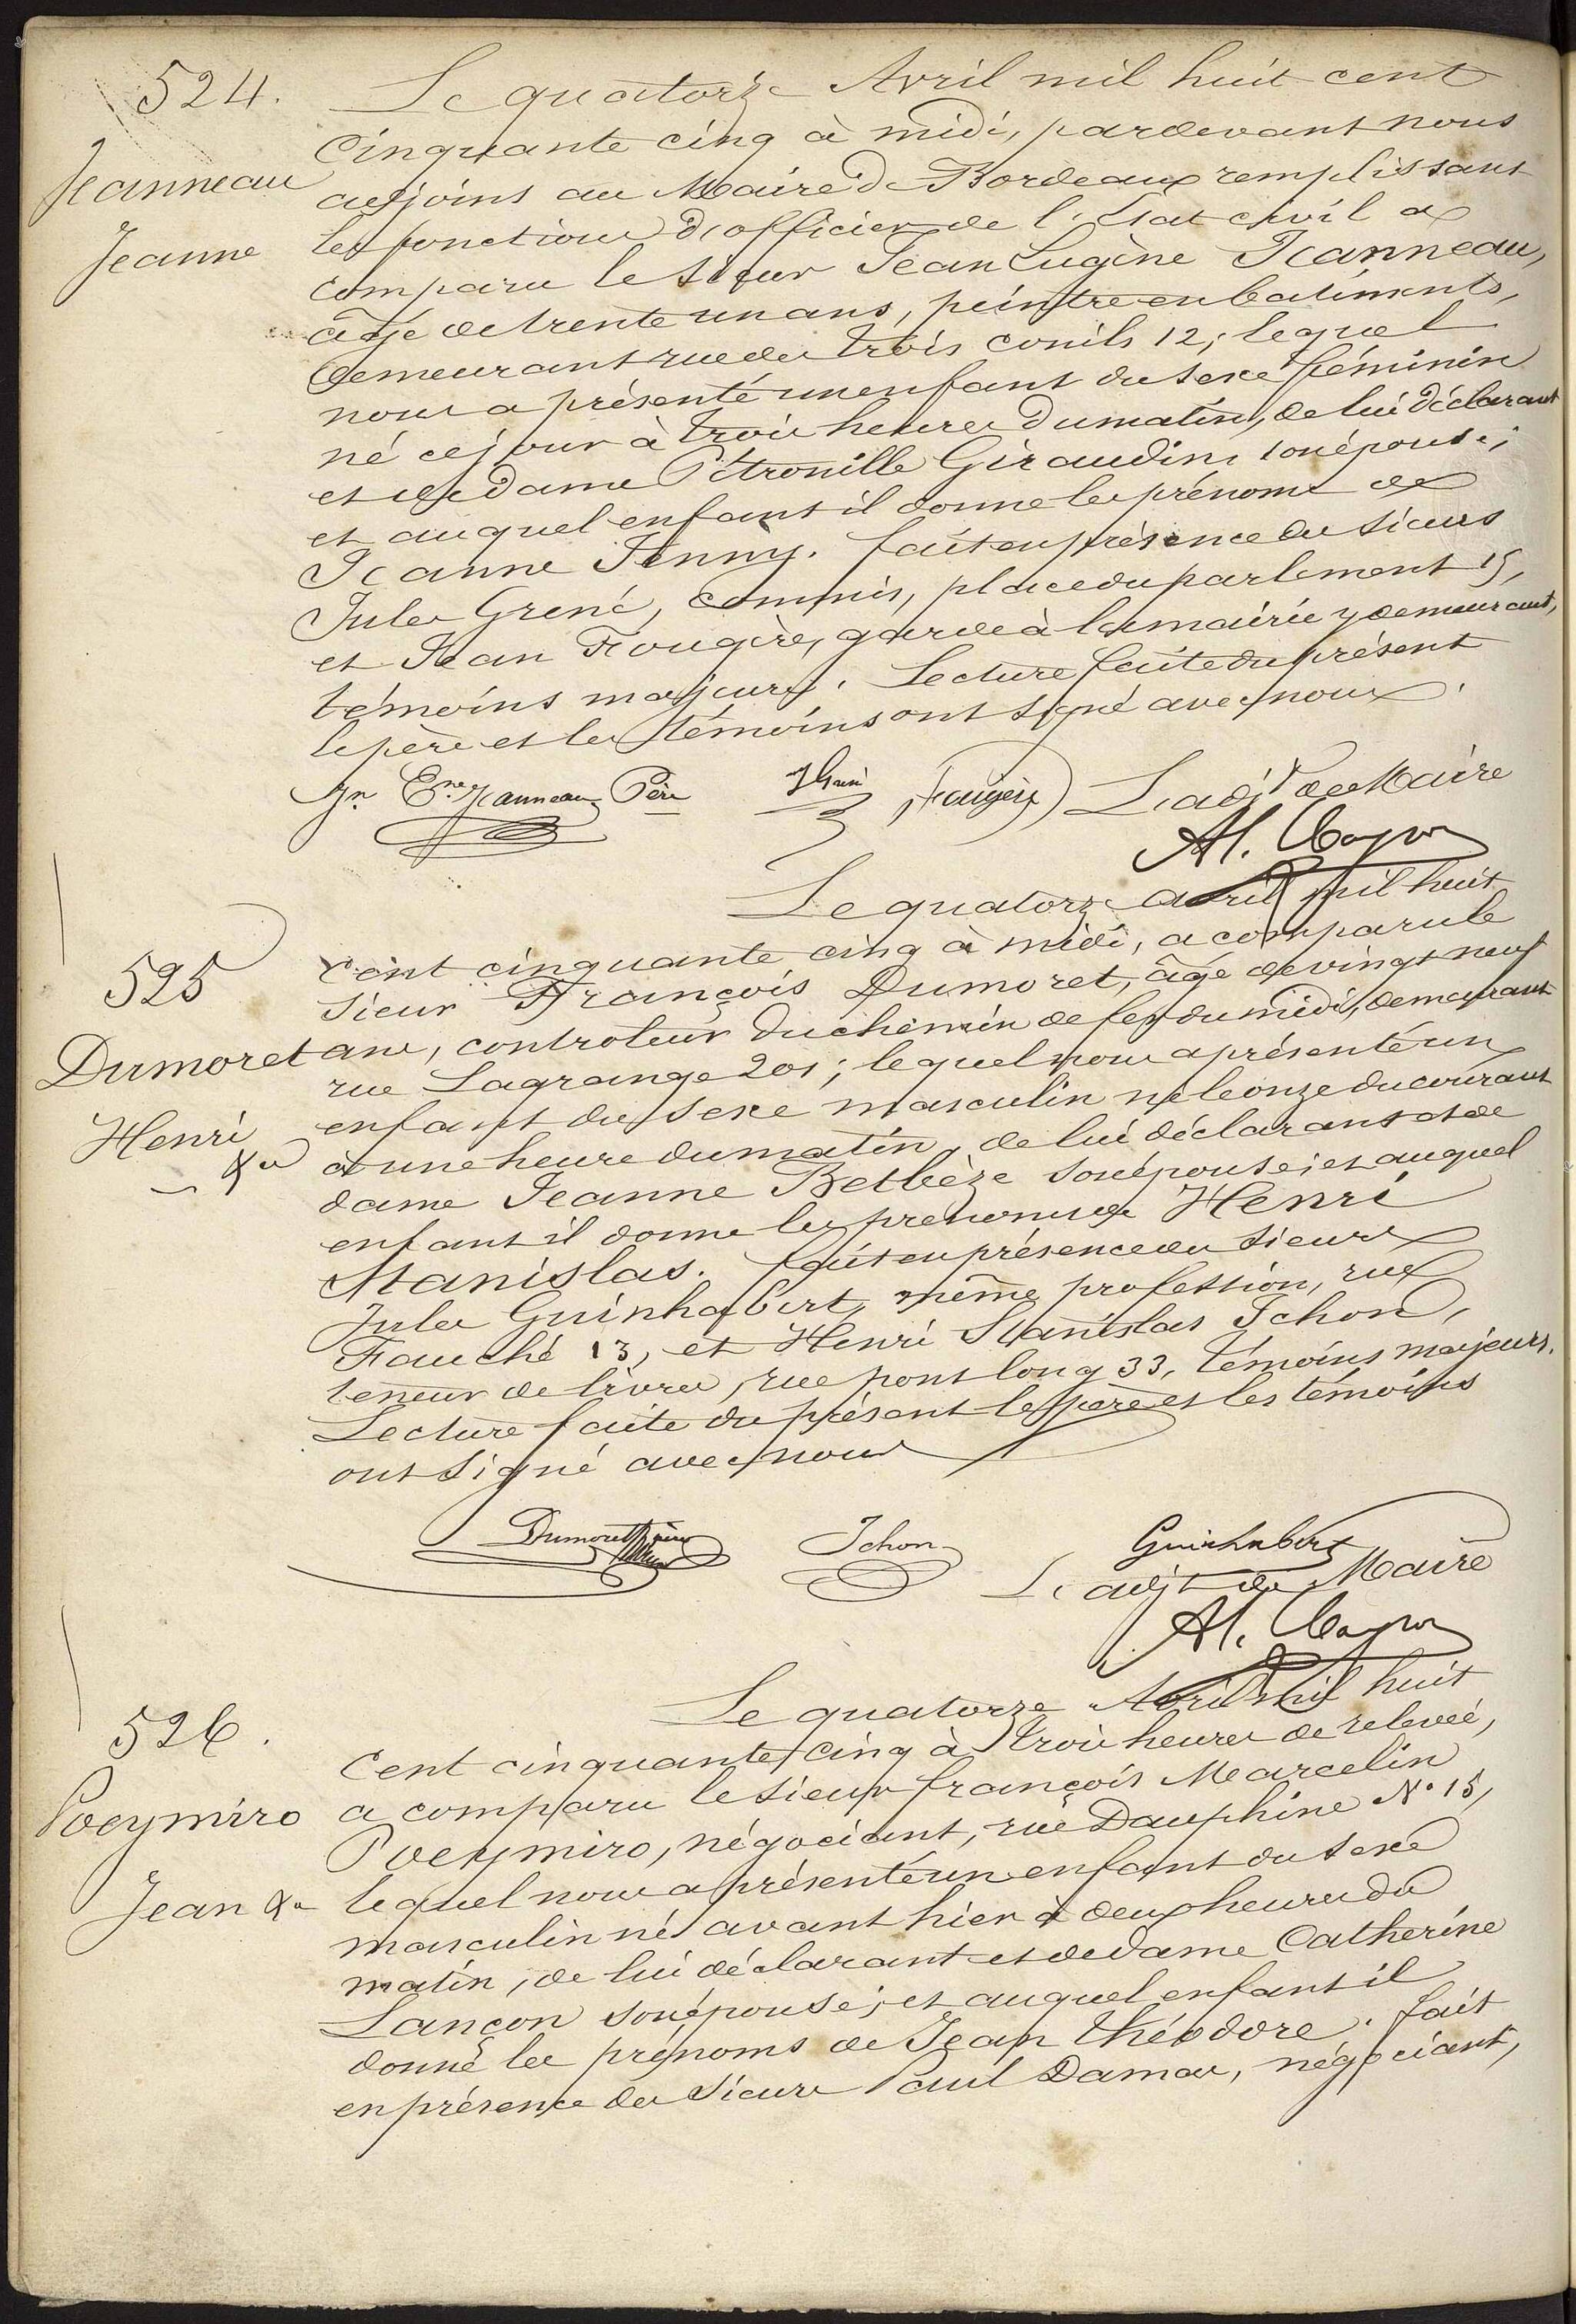 524.
Jeanneau
Jeanne
Le quatorze Avril mil huit cent
Cinquante cinq à midi, pardevant nous
adjoins au Maire de Bordeaux remplissant
les fonctions d'officier de l'Etat civil a
comparu le sieur Jean Eugène Jeanneau,
âgé de trente un ans, peintre en batiments,
demeurant rue des trois conils 12; lequel
nous a présenté un enfant du sexe féminin
né ce jour à trois heures du matin, de lui déclarant
et de dame Pétronille Giraudin, son épouse;
et auquel enfant il donne les prénoms de
Jeanne Jenny. fait en présence des sieurs
Jules Grené, commis, place du parlement 15,
et Jean Fougère, garde à la mairie y demeurant,
témoins majeurs. Lecture faite du présent
le père et les témoins ont signé avec nous.
Jn Ene Jeanneau Père
Fougère
L'adjt de Maire
525
Dumoret
Henri
&a
Le quatorze avril mil huit
cent cinquante cinq à midi, a comparu le
sieur François Dumoret, âgé de vingt neuf
ans, controleur du chemin de fer du midi, demeurant
rue Lagrange 201; lequel nous a présenté un
enfant du sexe masculin né le onze du courant
à une heure du matin, de lui déclarant et de
dame Jeanne Betbèze son épouse; et auquel
enfant il donne les prenoms de Henri
Stanislas. fait en présence des sieurs
Jules Guinhabert, même profession, rue
Fauché 13, et Henri Stanislas Ichon,
teneur de livres, rue pont long 33, témoins majeurs.
Lecture faite du présent le père et les témoins
ont signé avec nous
Dumoret
Ichon
Guinhabert
L'adjt de Maire
526.
Poeymiro
Jean &a
Le quatorze Avril mil huit
Cent cinquante cinq à trois heures de relevée,
a comparu le sieur françois Marcelin
Poeymiro, négociant, rue Dauphine No 15,
lequel nous a présenté un enfant du sexe
masculin né avant hier à deux heures du
matin, de lui déclarant et de dame Catherine
Lançon son épouse; et auquel enfant il
donne les prénoms de Jean théodore. fait
en présence des sieurs Paul Damas, négociant,